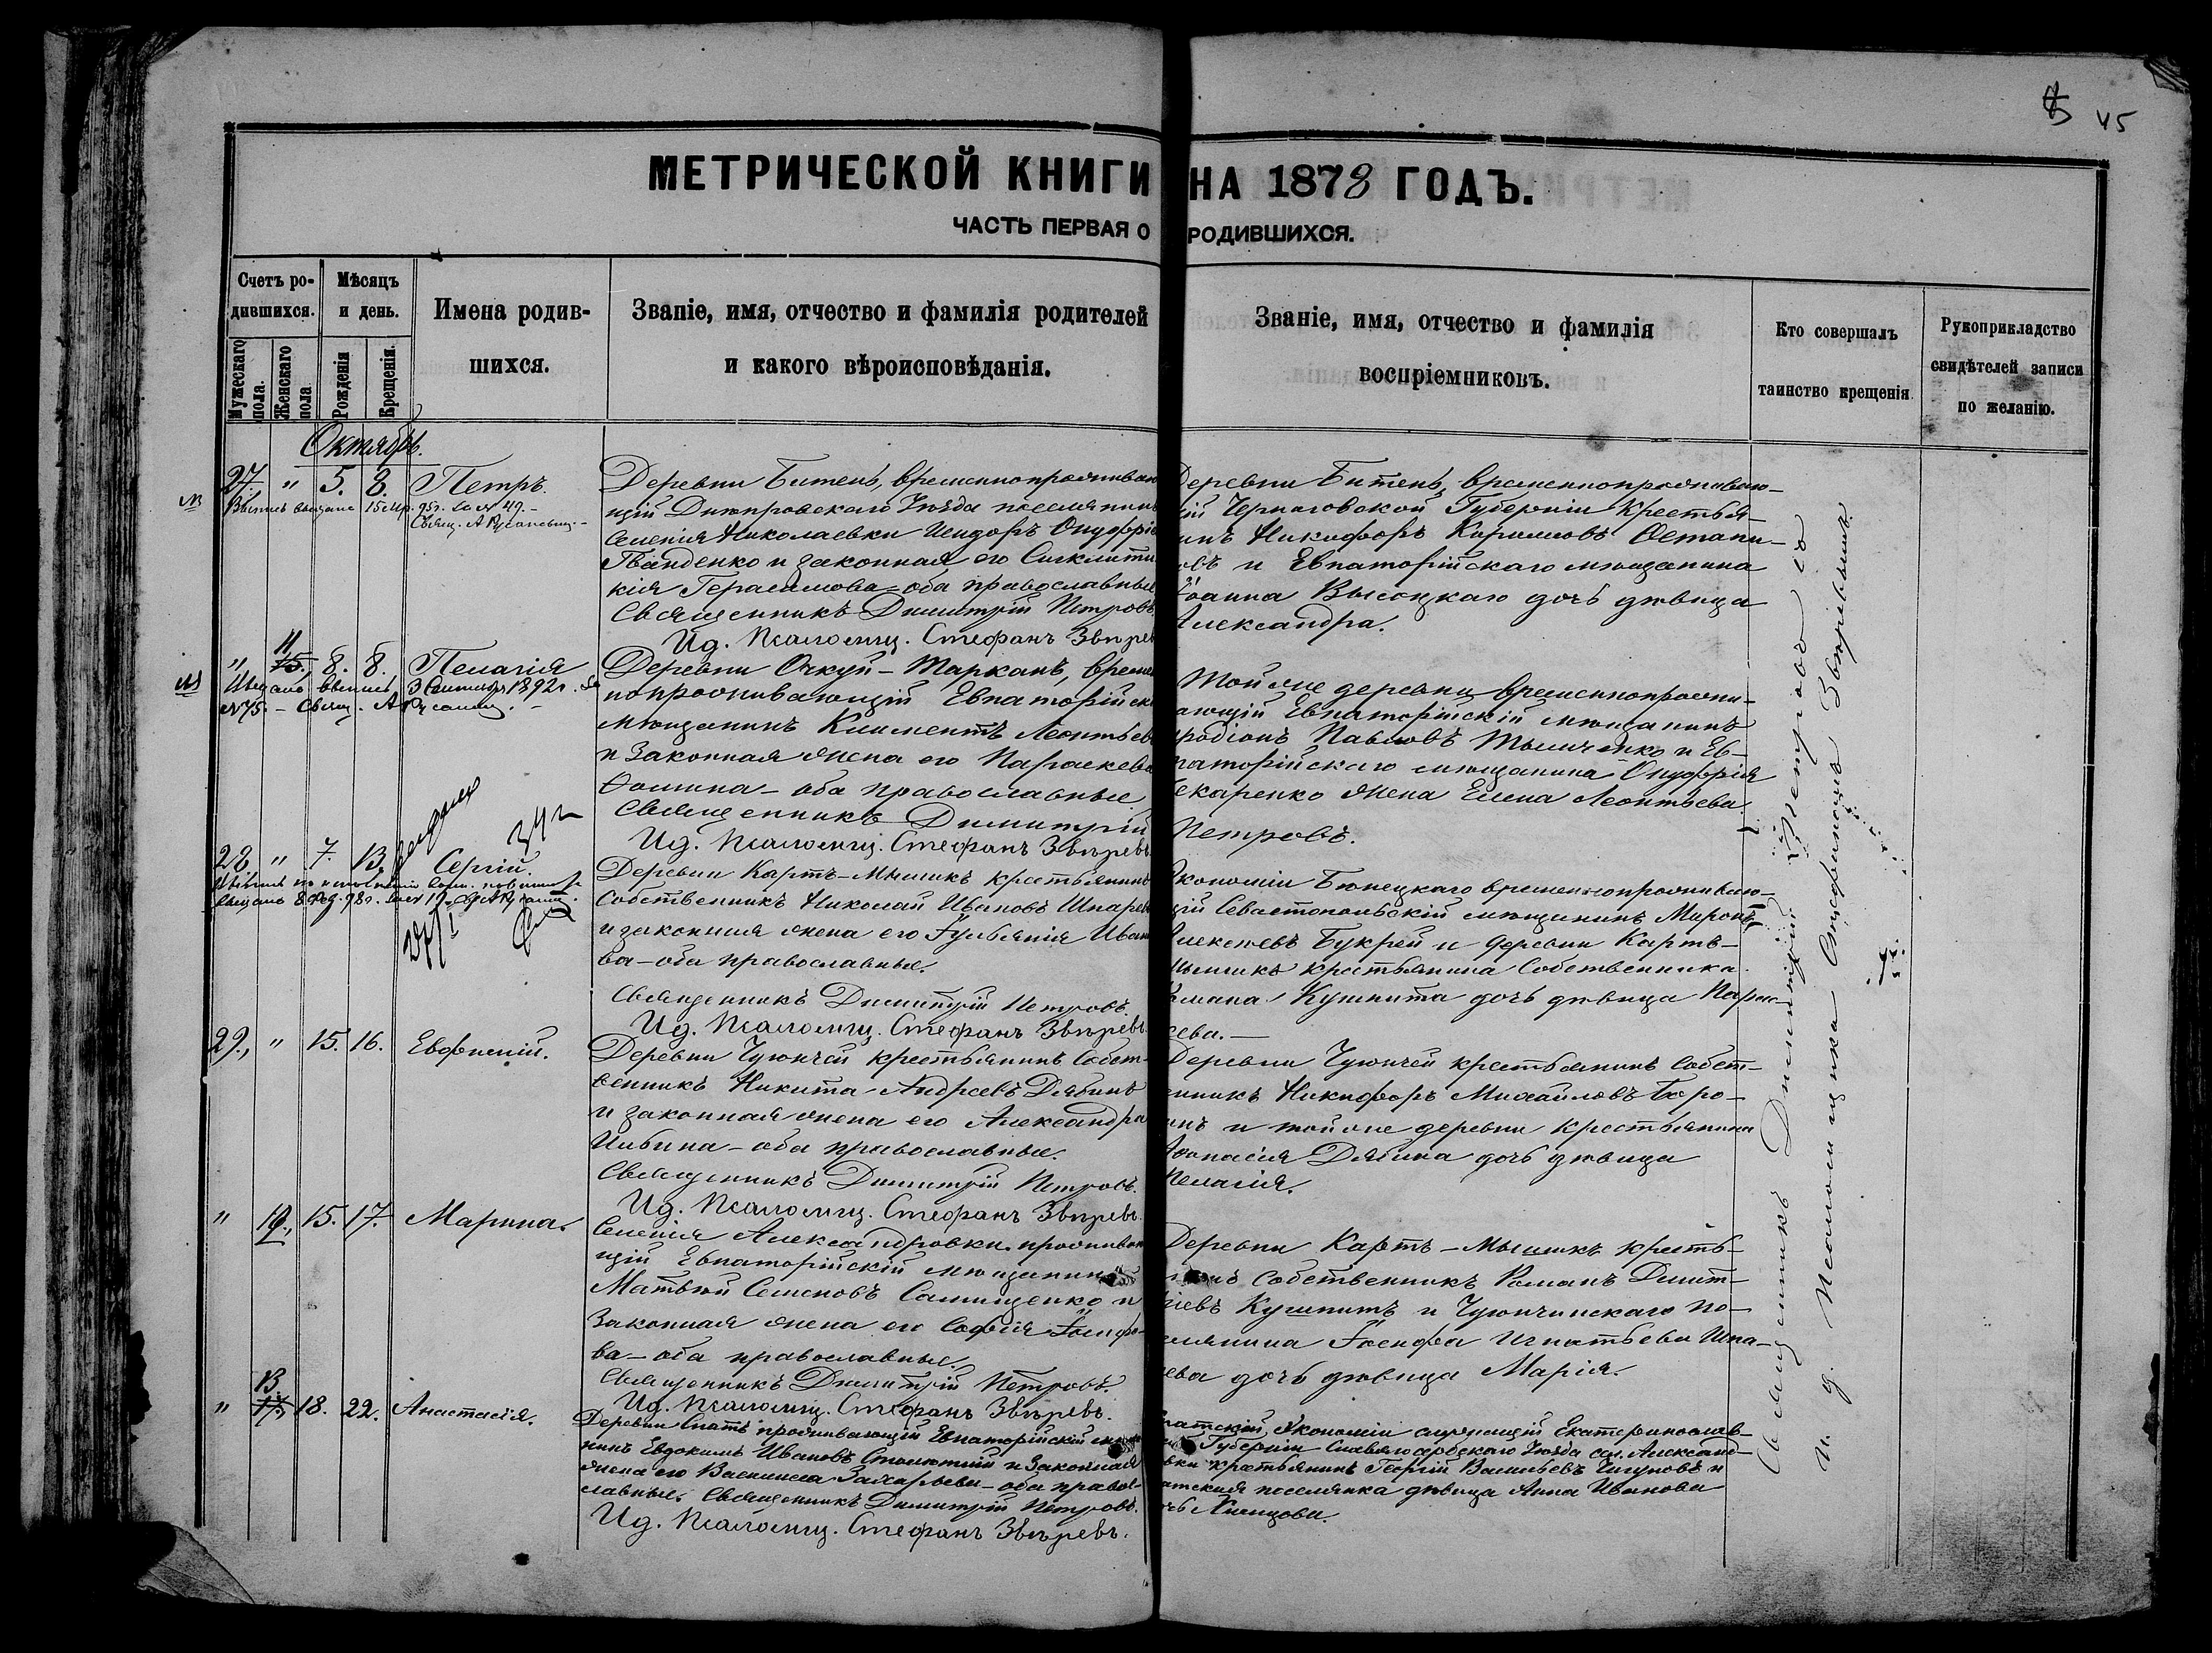 45
МЕТРИЧЕСКОЙ КНИГИ НА 1878 ГОДЪ.
ЧАСТЬ ПЕРВАЯ О РОДИВШИХСЯ.
Счетъ ро-
дившихся.
Мужескаго пола.
Женскаго пола
Мѣсяцъ
и день.
Рожденія
Крещенія.
Имена родив-
шихся.
Званіе, имя, отчество и фамилія родителей
и какого вѣроисповѣданія.
Званіе, имя, отчество и фамилія
воспріемниковъ.
Кто совершалъ
таинство крещенія
Рукоприкладство
свидѣтелей записи
по желанію.
Октябрь.
27. " 5. 8. Петръ.
Выпись выдана 15 95г. за № 49.-
Свящ. А Русановъ
Деревни Битень, временнопроживаю
щій Днѣпровскаго Уѣзда поселянинъ
Селенія Николаевки Исидоръ Онуфріе
и законная его Синклити
кія Герасимова оба православные
Священникъ Димитрій Петровъ
Ид. Псаломщ. Стефанъ Звѣрев
Деревни Битень, временнопроживаю-
ій Черниговской Губерніи Крестья-
инъ Никифоръ Кириловъ Остапи-
овъ и Евпаторійскаго мѣщанина
Іоанна Высоцкаго дочь дѣвица
Александра.
" 11 8. 8. Пелагія
выпись 3 1892г. за
№75. - Свящ. А Русановъ. -
Деревни Очкуй-Тарханъ, време
нопроживающій Евпаторійск
мѣщанинъ Климентъ Леонтьев
и Законная жена его Параскева
Фомина - оба православные
Священникъ Димитрій Петровъ.
Ид. Псаломщ. Стефанъ Звѣревъ.
Той же деревни временнопрожи-
ающій Евпаторійскій мѣщанинъ
родіонъ Павловъ Тымченко и Ев-
паторійскаго мѣщанина Онуфрія
екаренко жена Елена Леонтьева.
28 " 7. 13. Сергій.
выдано 8 98г. за № 19
Деревни Картъ-Мышикъ крестьянинъ
Собственникъ Николай Ивановъ Шпарев
и законная жена его Іуліанія Иван
ва - оба православные.
Священникъ Димитрій Петровъ.
Ид. Псаломщ. Стефанъ Звѣревъ.
Экономіи Бюнецкаго временнопроживаю-
щій Севастопольскій мѣщанинъ Миронъ
Алексѣевъ Букрей и деревни Картъ-
Мышикъ крестьянина Собственника
Романа Кушнита дочь дѣвица Парас-
кева. -
29. " 15. 16. Евфимій.
Деревни Чуюнчей крестьянинъ Собст-
венникъ Никита Андреевъ Дябинъ
и законная жена его Александра
- оба православные.
Священникъ Димитрій Петровъ.
Ид. Псаломщ. Стефанъ Звѣревъ.
Деревни Чуюнчей крестьянинъ Собст-
енникъ Никифоръ Михайловъ Боро-
инъ и той же деревни крестьянина
Афанасія Дябина дочь дѣвица
Пелагія.
" 15. 17. Марина.
Селенія Александровки проживаю
щій Евпаторійскій мѣщанинъ
Матвѣй Семеновъ Самищенко и
Законная жена его Софія Іосифо-
ва - оба православные.
Священникъ Димитрій Петровъ.
Ид. Псаломщ. Стефанъ Звѣревъ.
Деревни Картъ-Мышикъ кресть-
инъ Собственникъ Романъ Димит-
ріевъ Кушнитъ и Чуюнчинскаго По-
селянина Іосифа Игнатьева Шпа-
рева дочь дѣвица Марія.
" 13 18. 22. Анастасія.
Деревни Спатъ проживающій Евпаторійскій мѣща
нинъ Евдокимъ Ивановъ и Законная
жена его Василисса Захарьева - оба правос-
лавные. Священникъ Димитрій Петровъ.
Ид. Псаломщ. Стефанъ Звѣревъ.
патской Экономіи служащій Екатеринослав-
Губерніи Славяносербскаго Уѣзда сел. Алексан-
вки крестьянинъ Георгій Васильевъ и
патская поселянка дѣвица Анна Иванова
очь
Священникъ Димитрій Петровъ съ
и. д. Псаломщика Стефаномъ Звѣревымъ.